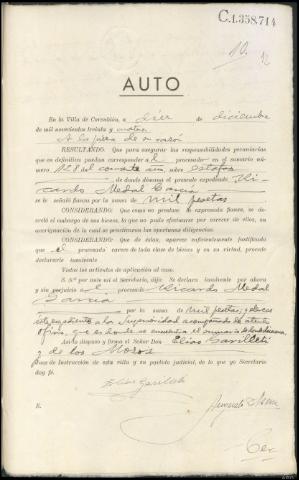 C.1.358.714
10
12
AUTO
En la Villa de Corcubión, a diez de diciembre
de mil novecientos treinta y cuatro.
A los fines de su razón
RESULTANDO: Que para asegurar las responsabilidades pecuniarias que
en definitiva puedan corresponder a l procesado en el sumario
núm. 128 del corriente año sobre estafa
, de donde dimana el presente expediente Ri-
cardo Medal García
se le señaló fianza por la suma de mil pesetas
CONSIDERANDO: Que como no prestase la expresada fianza, se de-
cretó el embargo de sus bienes, lo que no pudo efectuarse por carecer de ellos, en
averiguación de lo cual se practicaron las oportunas diligencias.
CONSIDERANDO: Que de éstas, aparece suficientemente justificado
que el procesado carece de toda clase de bienes y en su virtud, precede
declararle insolvente
Vistos los artículos de aplicación al caso.
S. S. por ante mi el Secretario, dijo: Se declara insolvente por ahora y
sin perjuicio al procesado Ricardo Medal
García
por la suma de mil pesetas; y elévese
este expediente a la Superioridad acompañado de atento
oficio, que es donde se encuentra el sumario de donde dimana.
Así lo dispuso y firma el Señor Don Elías Garilleti
y de los Mozos
Juez de Instrucción de esta villa y su partido judicial, de lo que yo Secretario
doy fe.
Elías Garilleti
E.